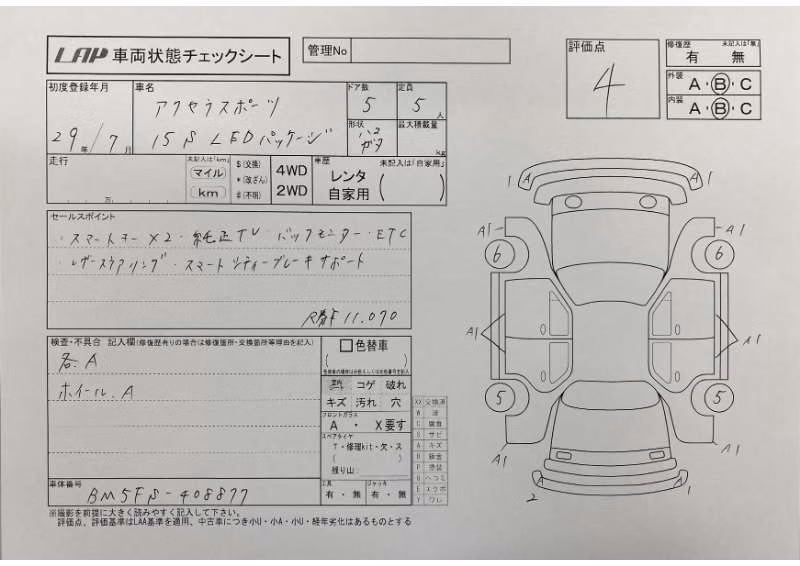 LAP 車両状態チェックシート
管理No
評価点
4
修復歴 未記入は「無」
有 無
外装 A・B・C
内装 A・B・C
初度登録年月
29年/7月
車名
アクセラスポーツ
15S LEDパッケージ
ドア数
5
定員
5人
形状
ハコ
ガタ
最大積載量
kg
走行
万
未記入は「km」
マイル
km
$(交換)
*(改ざん)
#(不明)
4WD
2WD
車歴 未記入は「自家用」
レンタ
自家用
セールスポイント
・スマートキーX2・純正TV・バックモニター・ETC
・レザーステアリング・スマートシティーブレーキサポート
R券¥11.070
検査・不具合 記入欄(修復歴有りの場合は修復箇所・交換箇所等理由を記入)
各.A
ホイール.A
色替車
コゲ 破れ
キズ 汚れ 穴
フロントガラス
A ・ X要す
スペアタイヤ
T・修理kit・欠・ス
残り山:
工具
有・無
ジャッキ
有・無
XX 交換済
W 波
C 腐食
S サビ
A キズ
P 塗装
U ヘコミ
E エクボ
Y ワレ
車体番号
BM5FS-408877
※撮影を前提に大きく読みやすく記入して下さい。
評価点、評価基準はLAA基準を適用、中古車につき小U・小A・小U・経年劣化はあるものとする
1 A A 1
A1 A1
6 6
A1 A1
5 5
A1 A1
2 A A 1